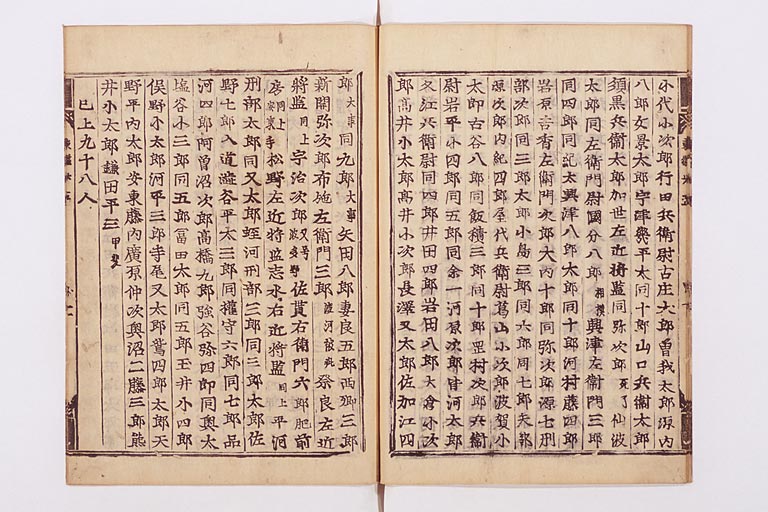 小代小次郎行田兵衛尉古庄太郎曽我太郎坂内
八郎女景太郎宇津幾平太同十郎山口兵衛太郎
須黒兵衛太郎加世左近将監同弥次郎死了仙波
太郎同左衛門尉國分八郎相模興津左衛門三郎
同四郎同紀太興津八郎太郎同十郎河村藤四郎
岩原吉香左衛門次郎大内十郎同弥次郎源七刑
部次郎同三郎太郎小島三郎同六郎同七郎矢部
源次郎内紀四郎屋代兵衛尉葛山小次郎波賀小
太郎古谷八郎同飯積三郎同十郎罡村次郎兵衛
尉岩平小四郎同五郎同余一河原次郎甘河太郎
久江兵衛尉同四郎井田四郎岩田八郎大倉小次
郎高井小太郎高井小次郎長澤又太郎佐加江四
郎大事同九郎大事矢田八郎妻良五郎西郷三郎
新開弥次郎布施左衛門三郎渡河伝死奈良左近
将監同上宇治次郎佐貫右衛門六郎肥前
房同上安東手松野左近将監志水右近将監同上平河
刑部太郎同又太郎蛭河刑部三郎同三郎太郎佐
野七郎入道澁谷平太三郎同權守六郎同七郎品
河四郎阿曽沼次郎高橋九郎強谷弥四郎同奥太
塩谷小三郎同五郎冨田太郎同五郎玉井小四郎
俣野小太郎河平三郎寺尾又太郎鷲四郎太郎天
野平内太郎安東藤内廣原仲次與沼二藤三郎熊
井小太郎鎌田平三甲斐
已上九十八人